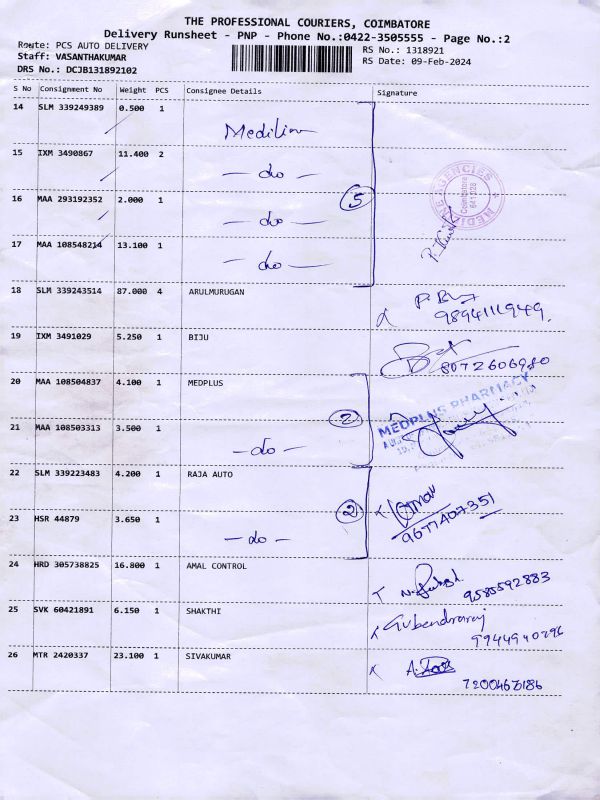 THE PROFESSIONAL COURIERS, COIMBATORE
Delivery Runsheet - PNP - Phone No.:0422-3505555 - Page No.:2
Route: PCS AUTO DELIVERY
RS No.: 1318921
Staff: VASANTHAKUMAR
RS Date: 09-Feb-2024
DRS No.: DCJB131892102
S No Consignment No Weight PCS Consignee Details Signature
14 SLM 339249389 0.500 1
15 IXM 3490867 11.400 2 — do —
16 MAA 293192352 2.000 1 — do —
5
MEDIZINE AGENCIES
Coimbatore
641 028
17 MAA 108548214 13.100 1 — do —
18 SLM 339243514 87.000 4 ARULMURUGAN
9894111949.
19 IXM 3491029 5.250 1 BIJU
8072606980
20 MAA 108504837 4.100 1 MEDPLUS
2
MEDPLUS PHARMACY
21 MAA 108503313 3.500 1 — do —
22 SLM 339223483 4.200 1 RAJA AUTO
2
9677407351
23 HSR 44879 3.650 1 — do —
24 HRD 305738825 16.800 1 AMAL CONTROL
9585592883
25 SVK 60421891 6.150 1 SHAKTHI
Gubendraraj
9944940296
26 MTR 2420337 23.100 1 SIVAKUMAR
7200467186